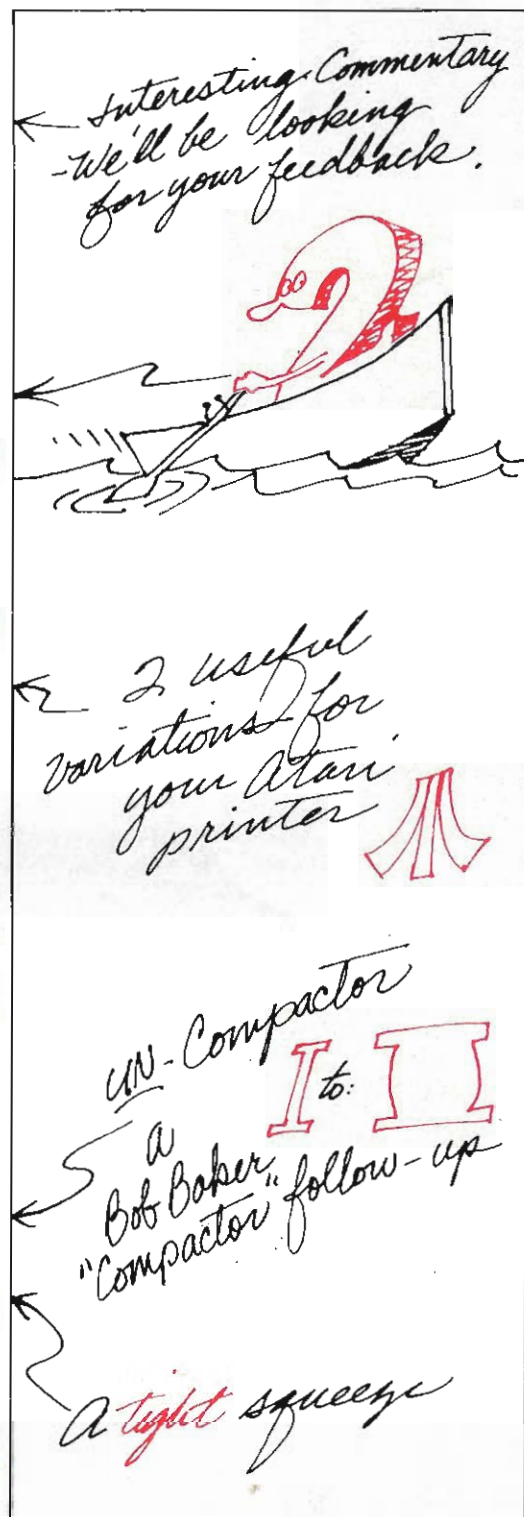 Interesting Commentary
-We'll be looking
for your feedback.
2 useful
variations for
your Atari
printer
UN-Compactor
I to: I
a
Bob Baker
"Compactor" follow-up
A tight squeeze